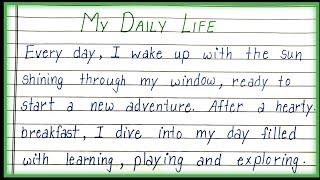 MY DAILY LIFE
Every day, I wake up with the sun
shining through my window, ready to
start a new adventure. After a hearty
breakfast, I dive into my day filled
with learning, playing and exploring.